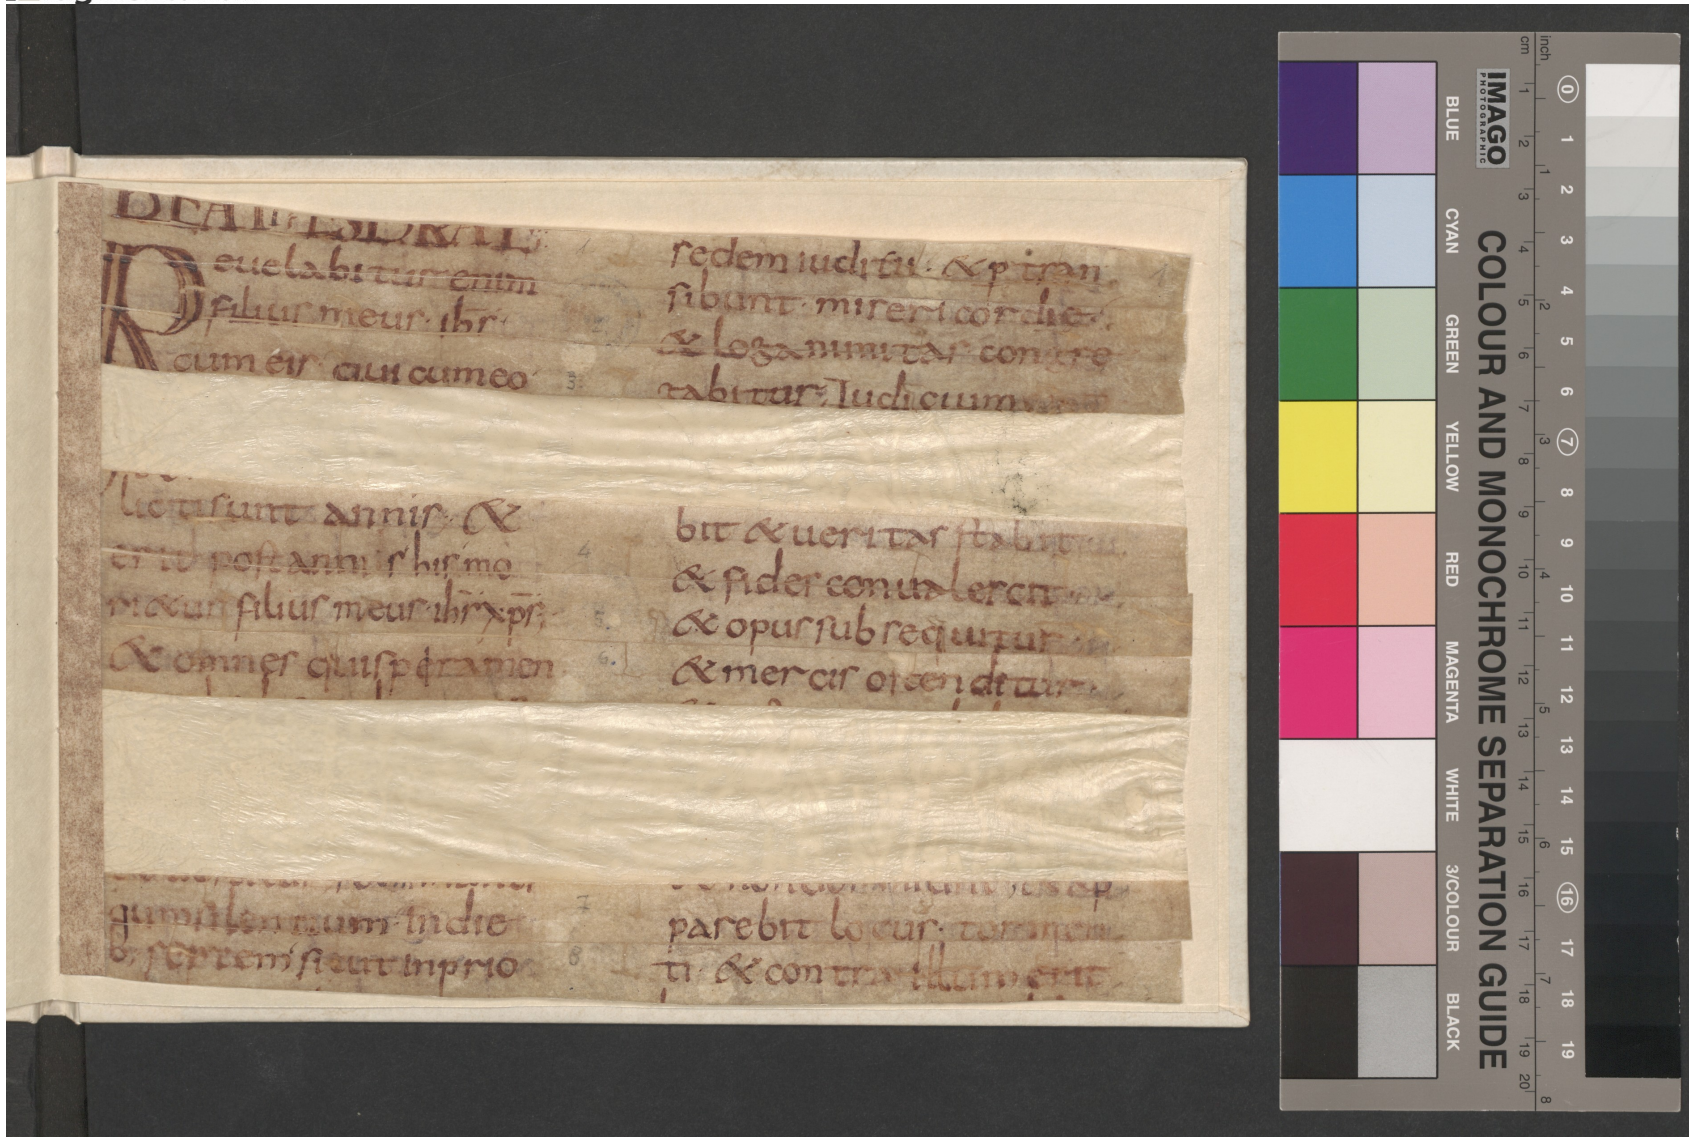 BEATI ESDRAE
Reuelabitur enim
filius meus· ihs·
cum eis qui cumeo
licti sunt annis· &
erit post annis his mo
ri&ur filius meus· ihs xps·
& omnes qui spiramen
quin
tum· Indie
septem sicut inprio
sedem iuditii· & p tran
sibunt· miseri cordie·
& loganimitas congre
tabitur; Iudicium
bit & ueritas stabit
& fides conualescit
& opus subsequitur
& merces ostenditur
ap
parebit locus· tormen
ti· & contra illum erit
1
2
3
4
5.
6.
7
8
IMAGO
PHOTOGRAPHIC
COLOUR AND MONOCHROME SEPARATION GUIDE
BLUE
CYAN
GREEN
YELLOW
RED
MAGENTA
WHITE
3/COLOUR
BLACK
cm 1 2 3 4 5 6 7 8 9 10 11 12 13 14 15 16 17 18 19 20
inch 1 2 3 4 5 6 7 8
0 1 2 3 4 5 6 7 8 9 10 11 12 13 14 15 16 17 18 19